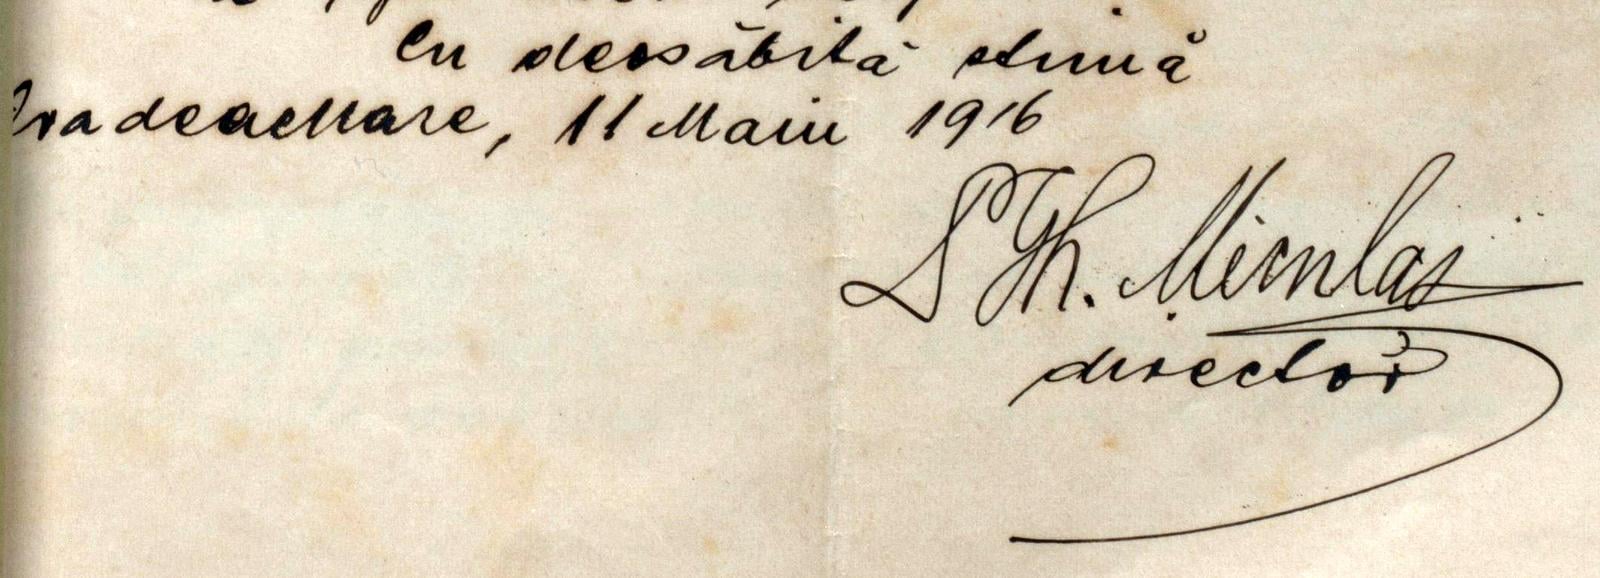 Cu deosăbită stimă
Oradeamare, 11 Maiu 1916
Gh. Miculaș
director